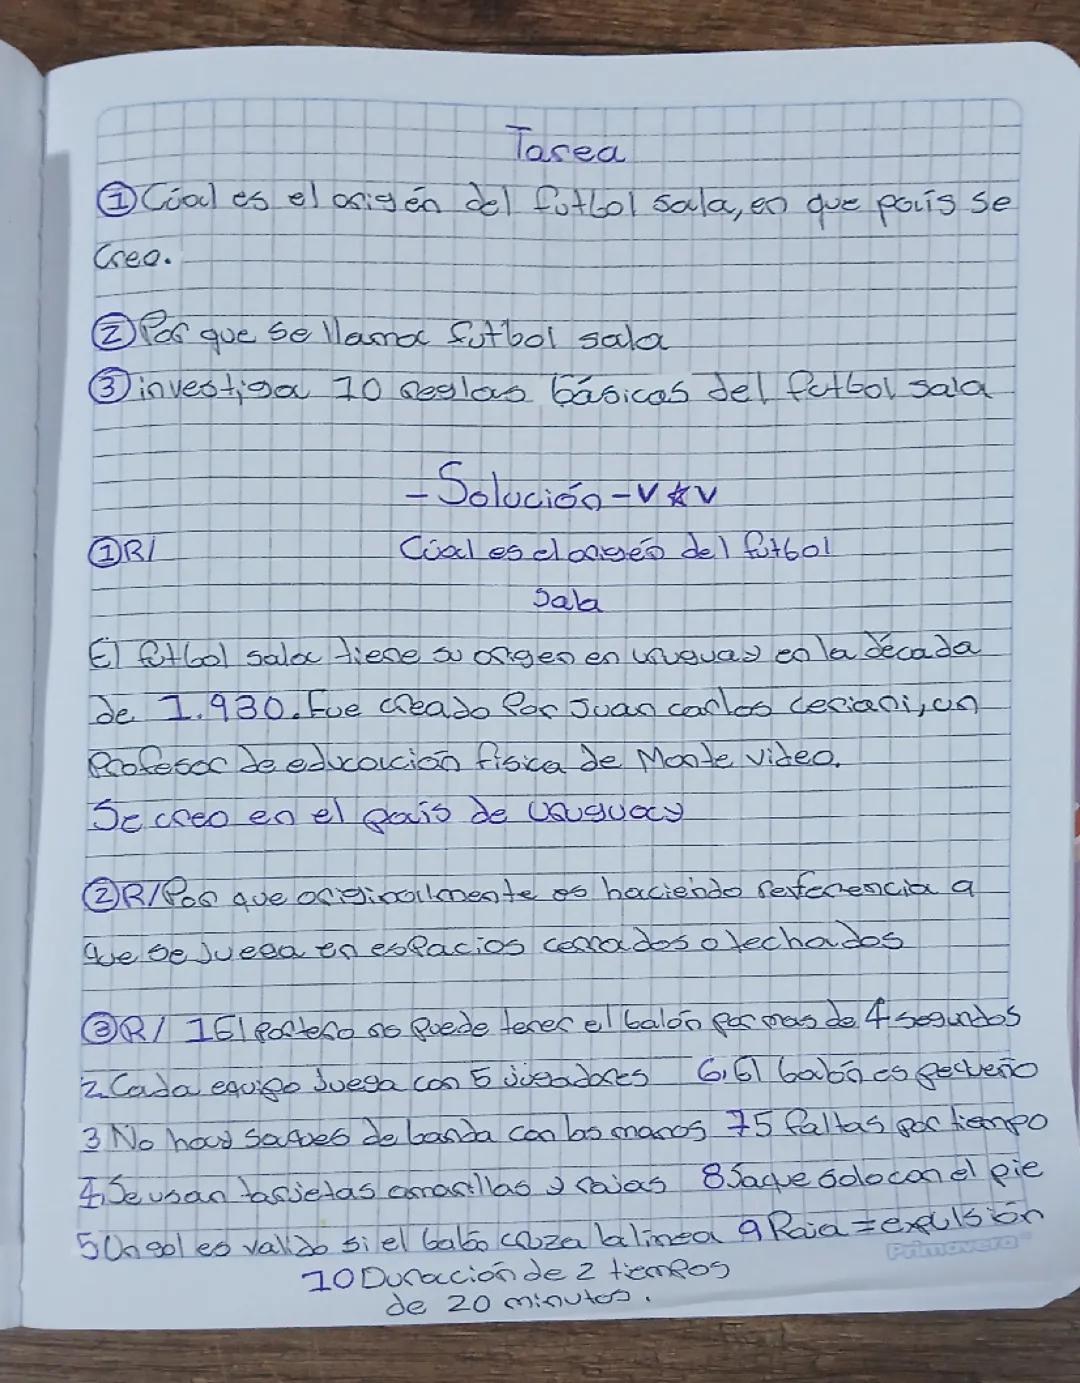 Tarea
① Cúal es el origén del futbol sala, en que país se
creo.
② Por que se llama futbol sala
③ investiga 10 reglas básicas del futbol sala
- Solución - V ☆ V
① R/ Cúal es el origen del futbol
Sala
El futbol sala tiene su origen en uruguay en la década
de 1.930. Fue creado por Juan carlos ceriani, un
Profesor de educación física de Monte video.
Se creo en el país de Uruguay
② R/ Por que originalmente es haciendo referencia a
que se juega en espacios cerrados o techados
③ R/ 1 El portero no puede tener el balón por mas de 4 segundos
2. Cada equipo Juega con 5 jugadores 6. El balón es pequeño
3 No hay saques de banda con las manos 7 5 faltas por tiempo
4. Se usan tarjetas amarillas y rojas 8 Saque solo con el pie
5 Un gol es valido si el balón cruza la linea 9 Roja = expulsión
Primavera
10 Duracción de 2 tiempos
de 20 minutos.